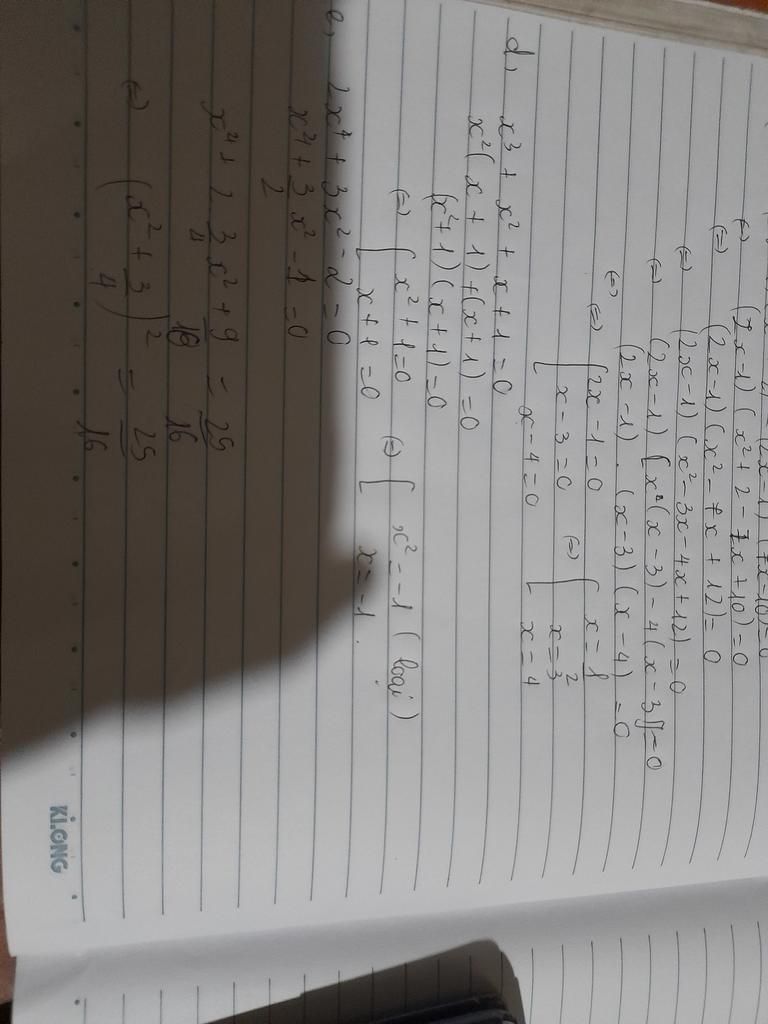 (2x-1) (x² + 2 - 7x + 10) = 0
(=) (2x-1) (x² - 7x + 12) = 0
(=) (2x-1) (x² - 3x - 4x + 12) = 0
(=) (2x-1) [x(x-3) - 4(x-3)] = 0
(=) (2x-1) . (x-3) (x-4) = 0
(=) [ 2x-1=0 (=) [ x = 1/2
x-3=0 x = 3
x-4=0 x = 4
d, x³ + x² + x + 1 = 0
x² (x + 1) + (x+1) = 0
(x²+1) (x+1) = 0
(=) [ x² + 1 = 0 (=) [ x² = -1 (loại)
x + 1 = 0 x = -1.
e, 2x⁴ + 3x² - 2 = 0
x⁴ + 3/2 x² - 1 = 0
x⁴ + 2 3/4 x² + 9/16 = 25/16
(=) (x² + 3/4)² = 25/16
KLONG